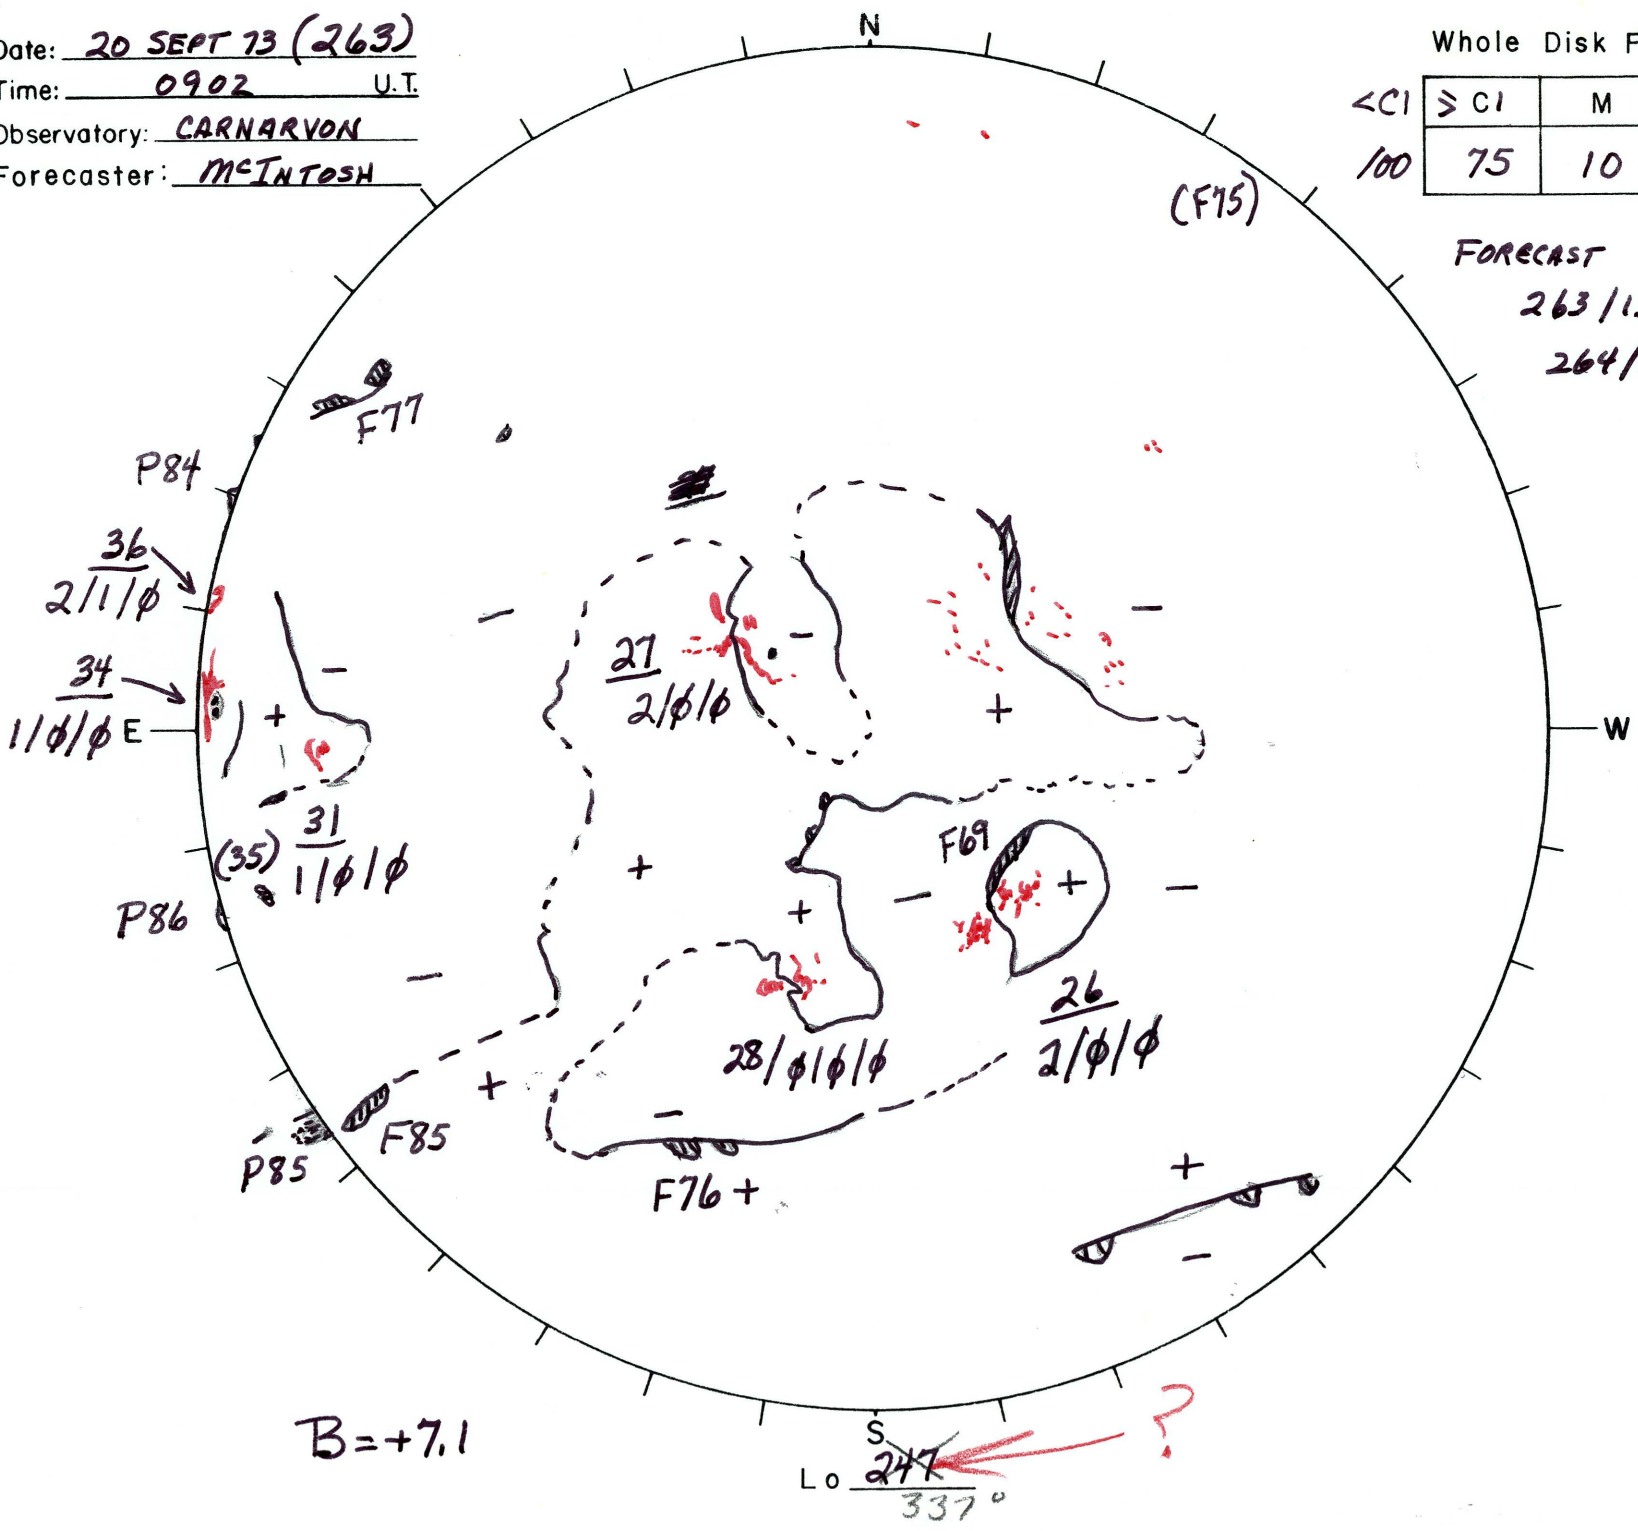 Date: 20 SEPT 73 (263)
Time: 0902 U.T.
Observatory: CARNARVON
Forecaster: McINTOSH
N
Whole Disk F
<C1 ≥ C1 M
100 75 10
(F75)
FORECAST
263/1.
264/
F77
P84
36
2/1/φ
34
1/φ/φ E
W
27
2/φ/φ
31
(35) 1/φ/φ
P86
F69
+
-
26
2/φ/φ
28/φ/φ/φ
F85
P85
F76 +
B=+7.1
S
Lo 247
337°
?